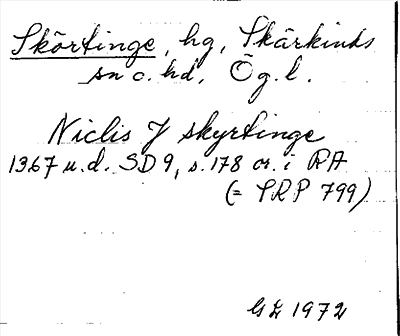 Skörtinge, hg, Skärkinds
sn o. hd, Ög.l.
Niclis J skyrtinge
1367 u.d. SD 9, s. 178 or. i RA
(= SRP 799)
GL 1972